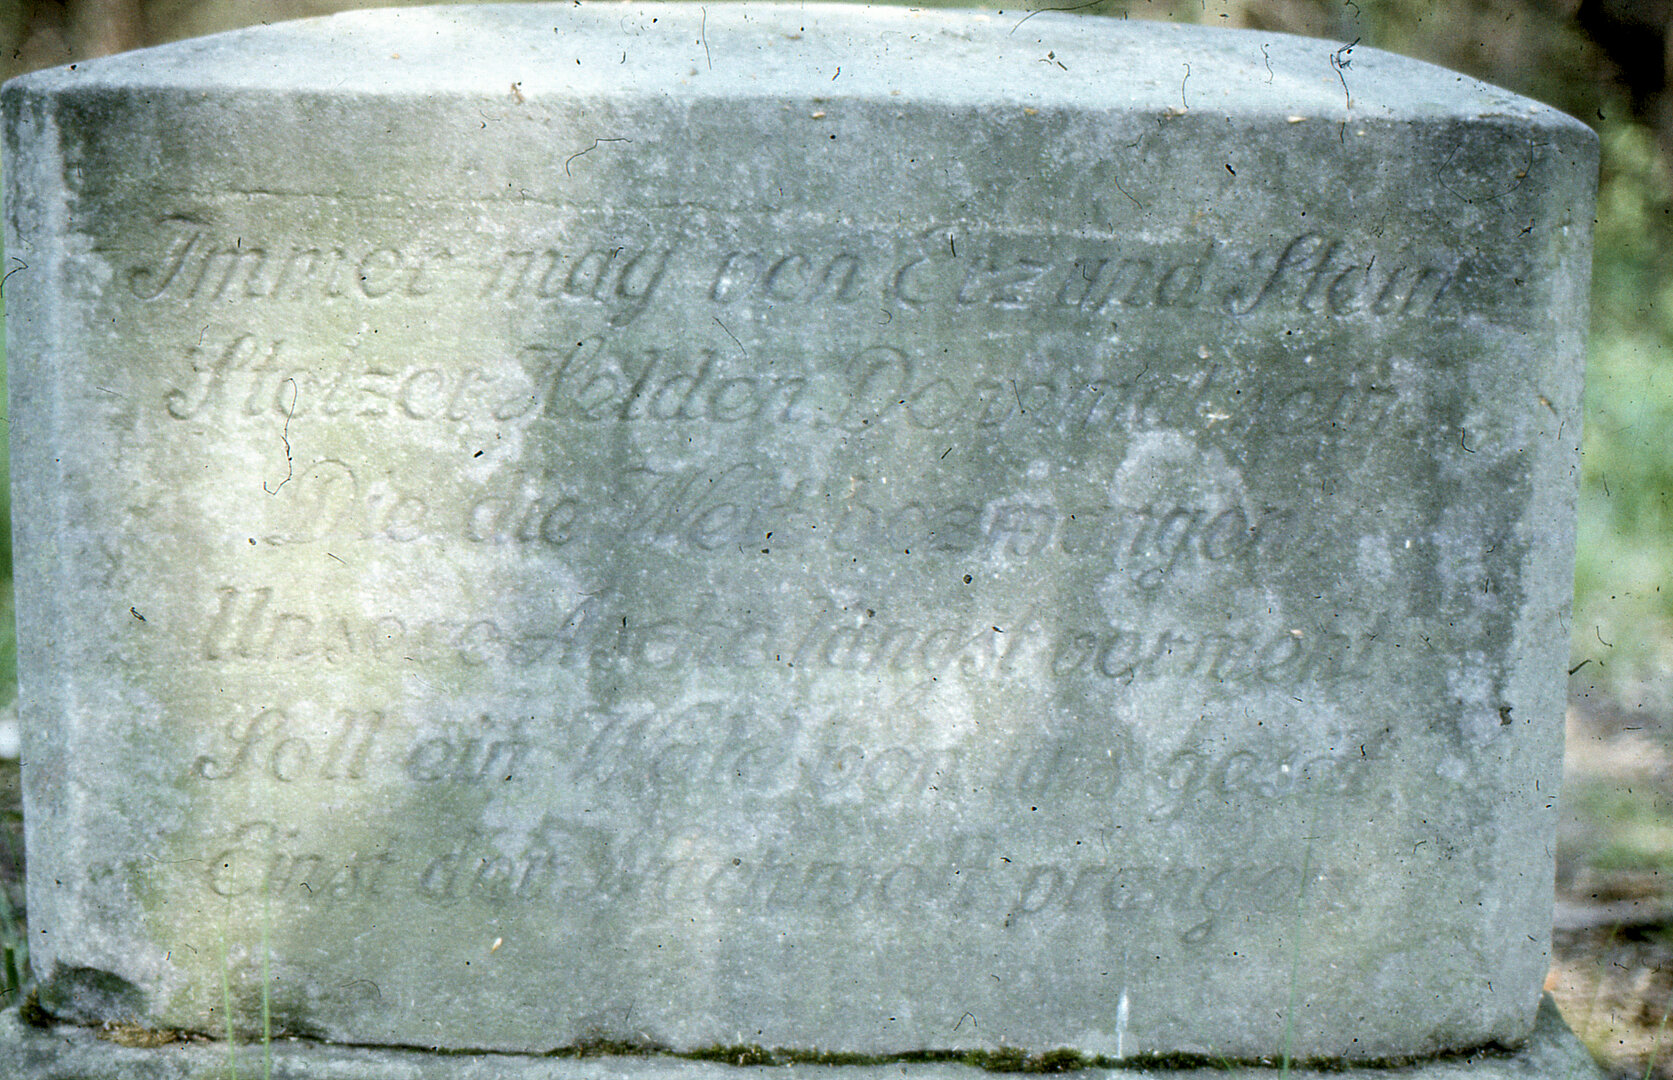 Immer mag von Erz und Stein
Stolzer Helden Denkmal sein
Die die Welt bezwungen
Unsere längst vermehrt
Soll ein Wald von uns gesät
Einst der Nachwelt prangen